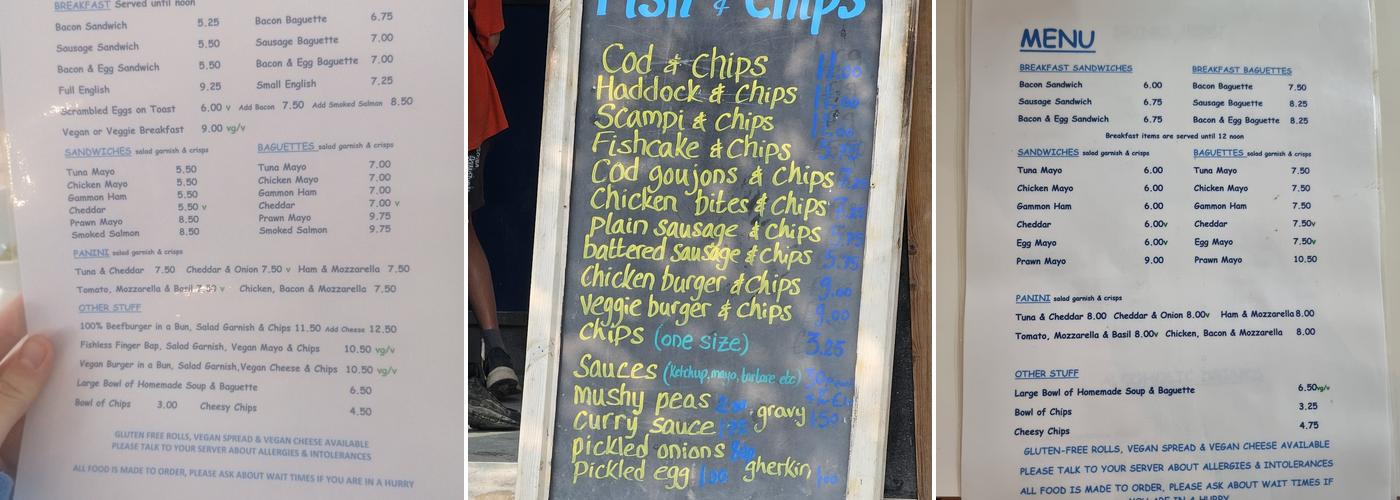 BREAKFAST Served until noon
Bacon Sandwich 5.25 Bacon Baguette 6.75
Sausage Sandwich 5.50 Sausage Baguette 7.00
Bacon & Egg Sandwich 5.50 Bacon & Egg Baguette 7.00
Full English 9.25 Small English 7.25
Scrambled Eggs on Toast 6.00 v Add Bacon 7.50 Add Smoked Salmon 8.50
Vegan or Veggie Breakfast 9.00 vg/v
SANDWICHES salad garnish & crisps BAGUETTES salad garnish & crisps
Tuna Mayo 5.50 Tuna Mayo 7.00
Chicken Mayo 5.50 Chicken Mayo 7.00
Gammon Ham 5.50 Gammon Ham 7.00
Cheddar 5.50 v Cheddar 7.00 v
Prawn Mayo 8.50 Prawn Mayo 9.75
Smoked Salmon 8.50 Smoked Salmon 9.75
PANINI salad garnish & crisps
Tuna & Cheddar 7.50 Cheddar & Onion 7.50 v Ham & Mozzarella 7.50
Tomato, Mozzarella & Basil 7.50 v Chicken, Bacon & Mozzarella 7.50
OTHER STUFF
100% Beefburger in a Bun, Salad Garnish & Chips 11.50 Add Cheese 12.50
Fishless Finger Bap, Salad Garnish, Vegan Mayo & Chips 10.50 vg/v
Vegan Burger in a Bun, Salad Garnish,Vegan Cheese & Chips 10.50 vg/v
Large Bowl of Homemade Soup & Baguette 6.50
Bowl of Chips 3.00 Cheesy Chips 4.50
GLUTEN FREE ROLLS, VEGAN SPREAD & VEGAN CHEESE AVAILABLE
PLEASE TALK TO YOUR SERVER ABOUT ALLERGIES & INTOLERANCES
ALL FOOD IS MADE TO ORDER, PLEASE ASK ABOUT WAIT TIMES IF YOU ARE IN A HURRY
Fish & Chips
Cod & chips 11.00
Haddock & chips
Scampi & chips
Fishcake & chips 5.75
Cod goujons & chips
Chicken bites & chips
Plain sausage & chips 5.75
battered sausage & chips 5.75
Chicken burger & chips 9.00
Veggie burger & chips 9.00
Chips (one size) 3.25
Sauces (ketchup, mayo, tartare etc)
mushy peas gravy 1.50
Curry sauce
pickled onions
Pickled egg 1.00 gherkin 1.00
MENU
BREAKFAST SANDWICHES BREAKFAST BAGUETTES
Bacon Sandwich 6.00 Bacon Baguette 7.50
Sausage Sandwich 6.75 Sausage Baguette 8.25
Bacon & Egg Sandwich 6.75 Bacon & Egg Baguette 8.25
Breakfast items are served until 12 noon
SANDWICHES salad garnish & crisps BAGUETTES salad garnish & crisps
Tuna Mayo 6.00 Tuna Mayo 7.50
Chicken Mayo 6.00 Chicken Mayo 7.50
Gammon Ham 6.00 Gammon Ham 7.50
Cheddar 6.00v Cheddar 7.50v
Egg Mayo 6.00v Egg Mayo 7.50v
Prawn Mayo 9.00 Prawn Mayo 10.50
PANINI salad garnish & crisps
Tuna & Cheddar 8.00 Cheddar & Onion 8.00v Ham & Mozzarella 8.00
Tomato, Mozzarella & Basil 8.00v Chicken, Bacon & Mozzarella 8.00
OTHER STUFF
Large Bowl of Homemade Soup & Baguette 6.50vg/v
Bowl of Chips 3.25
Cheesy Chips 4.75
GLUTEN-FREE ROLLS, VEGAN SPREAD & VEGAN CHEESE AVAILABLE
PLEASE TALK TO YOUR SERVER ABOUT ALLERGIES & INTOLERANCES
ALL FOOD IS MADE TO ORDER, PLEASE ASK ABOUT WAIT TIMES IF
YOU ARE IN A HURRY